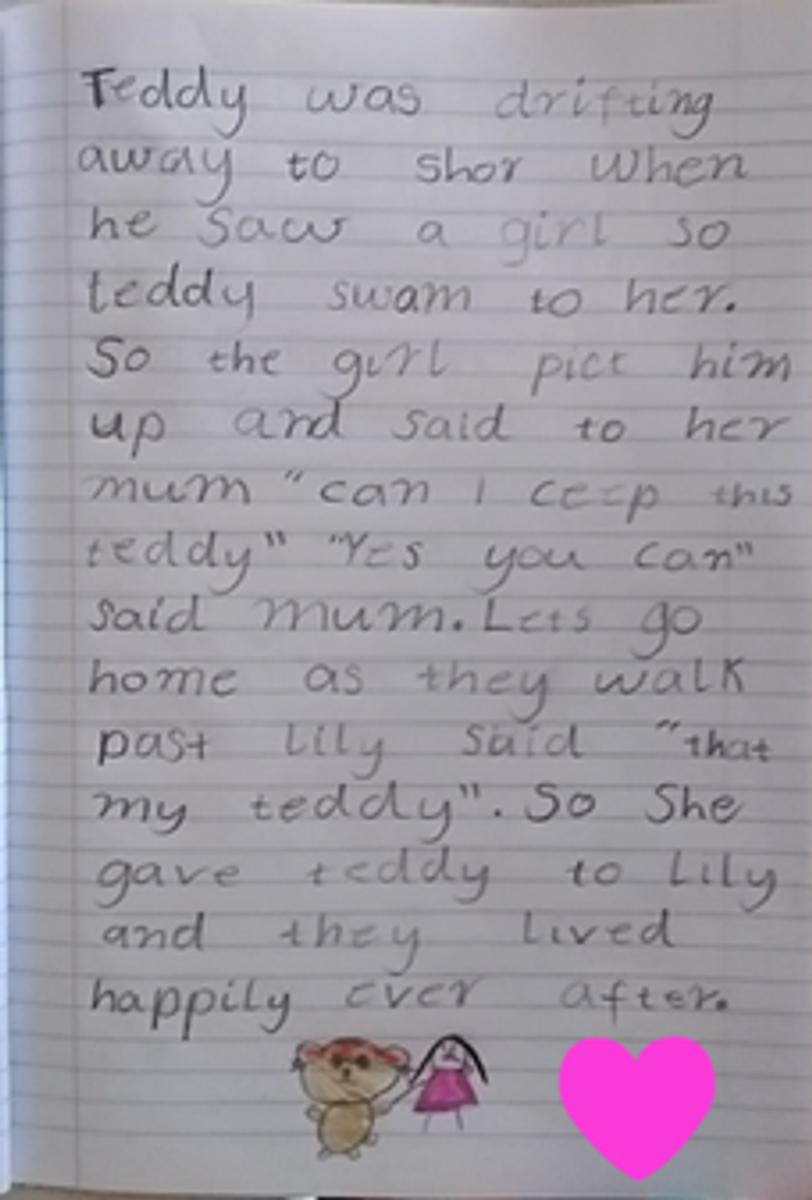 Teddy was drifting
away to shor when
he saw a girl so
teddy swam to her.
So the girl pict him
up and said to her
mum "can I ceep this
teddy" "Yes you can"
said mum. Lets go
home as they walk
past Lily said "that
my teddy". So She
gave teddy to Lily
and they lived
happily ever after.